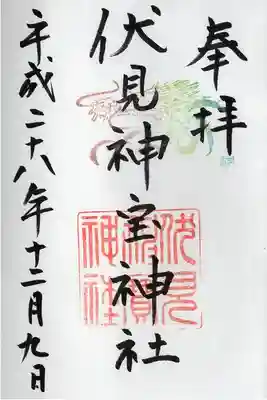 奉拝
伏見神宝神社
伏見神寳神社
平成二十八年十二月九日